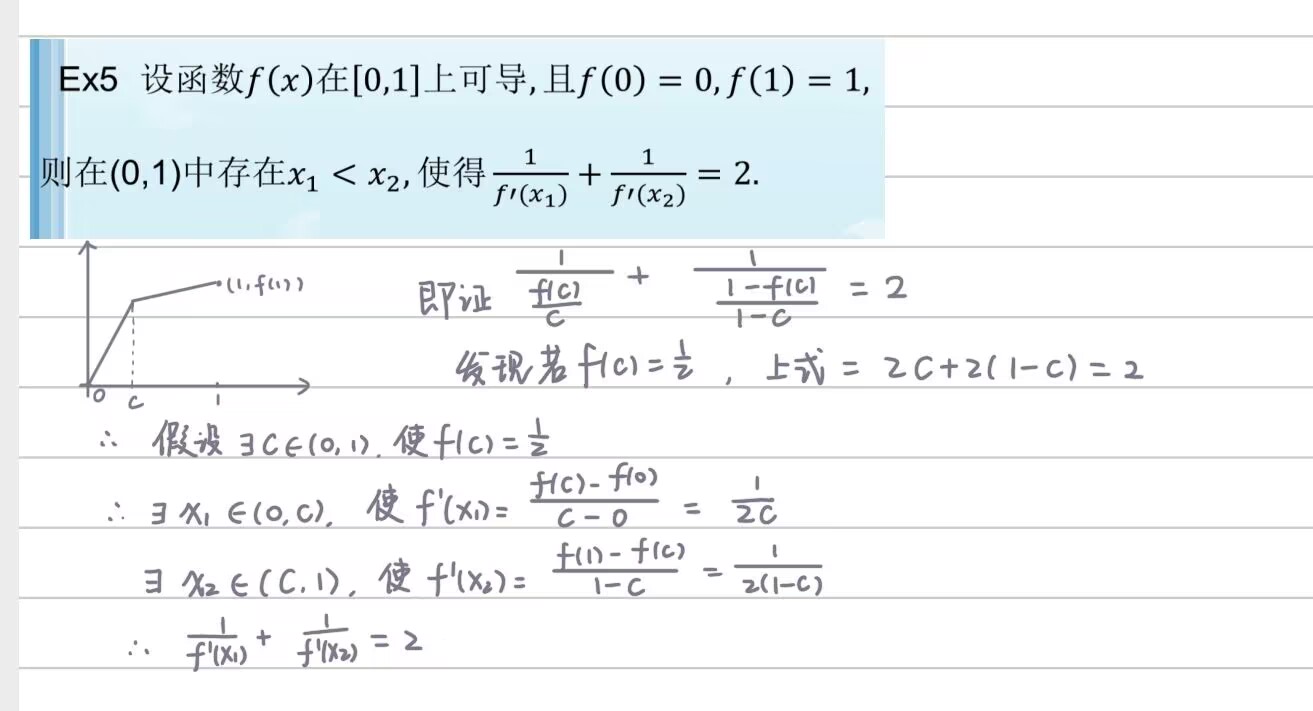 Ex5 设函数f(x)在[0,1]上可导,且f(0) = 0,f(1) = 1,
则在(0,1)中存在x₁ < x₂,使得 1/f′(x₁) + 1/f′(x₂) = 2.
(1,f(1))
0 c 1
即证 1/(f(c)/c) + 1/((1-f(c))/(1-c)) = 2
发现若 f(c)=1/2 , 上式 = 2c+2(1-c)=2
∴ 假设 ∃c∈(0,1), 使f(c)=1/2
∴ ∃ x₁ ∈(0,c), 使 f'(x₁)= (f(c)-f(0))/(c-0) = 1/2c
∃ x₂ ∈(c,1), 使 f'(x₂)= (f(1)-f(c))/(1-c) = 1/2(1-c)
∴ 1/f'(x₁) + 1/f'(x₂) = 2